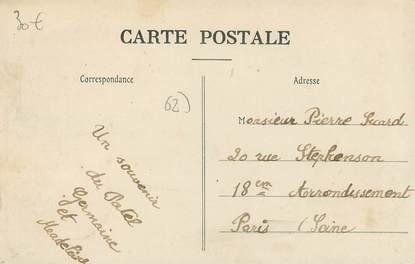 30€
CARTE POSTALE
Correspondance
Adresse
62)
Un souvenir
du
Germaine
et
Madeleine
Monsieur Pierre Suard
20 rue Stephenson
18em Arrondissement
Paris (Seine